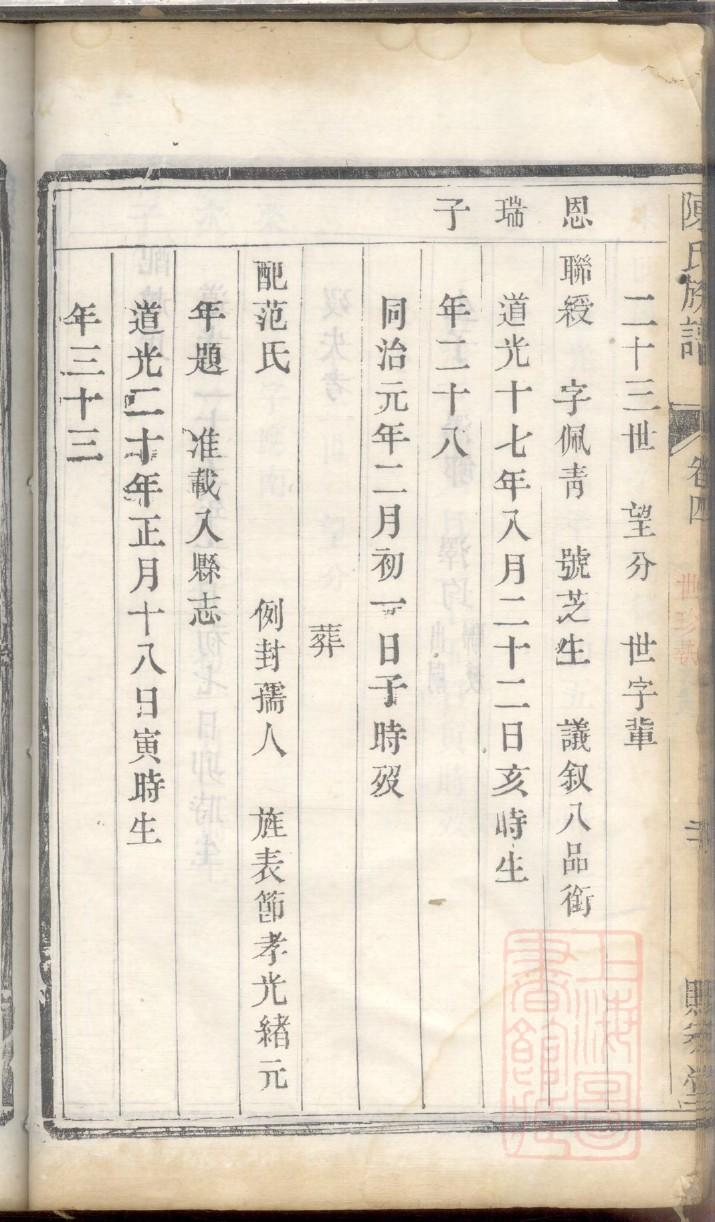 陳氏族譜
卷四
二十三世 望分 世字輩
恩 聯綬 字佩青 號芝生 議叙八品銜
瑞 道光十七年八月二十二日亥時生
子 年二十八
同治元年二月初一日子時歿
葬
配范氏 例封孺人 旌表節孝光緒元
年題 准載入縣志
道光二十年正月十八日寅時生
年三十三
上海圖書館藏